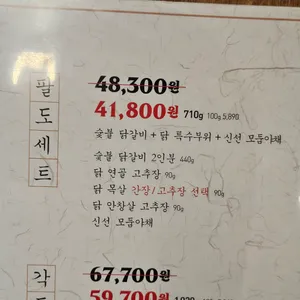 필도세트
48,300원
41,800원 710g 100g 5,890
숯불 닭갈비 + 닭 특수부위 + 신선 모둠야채
숯불 닭갈비 2인분 440g
닭 연골 고추장 90g
닭 목살 간장/고추장 선택 90g
닭 안창살 고추장 90g
신선 모둠야채
각
67,700원
59,700원